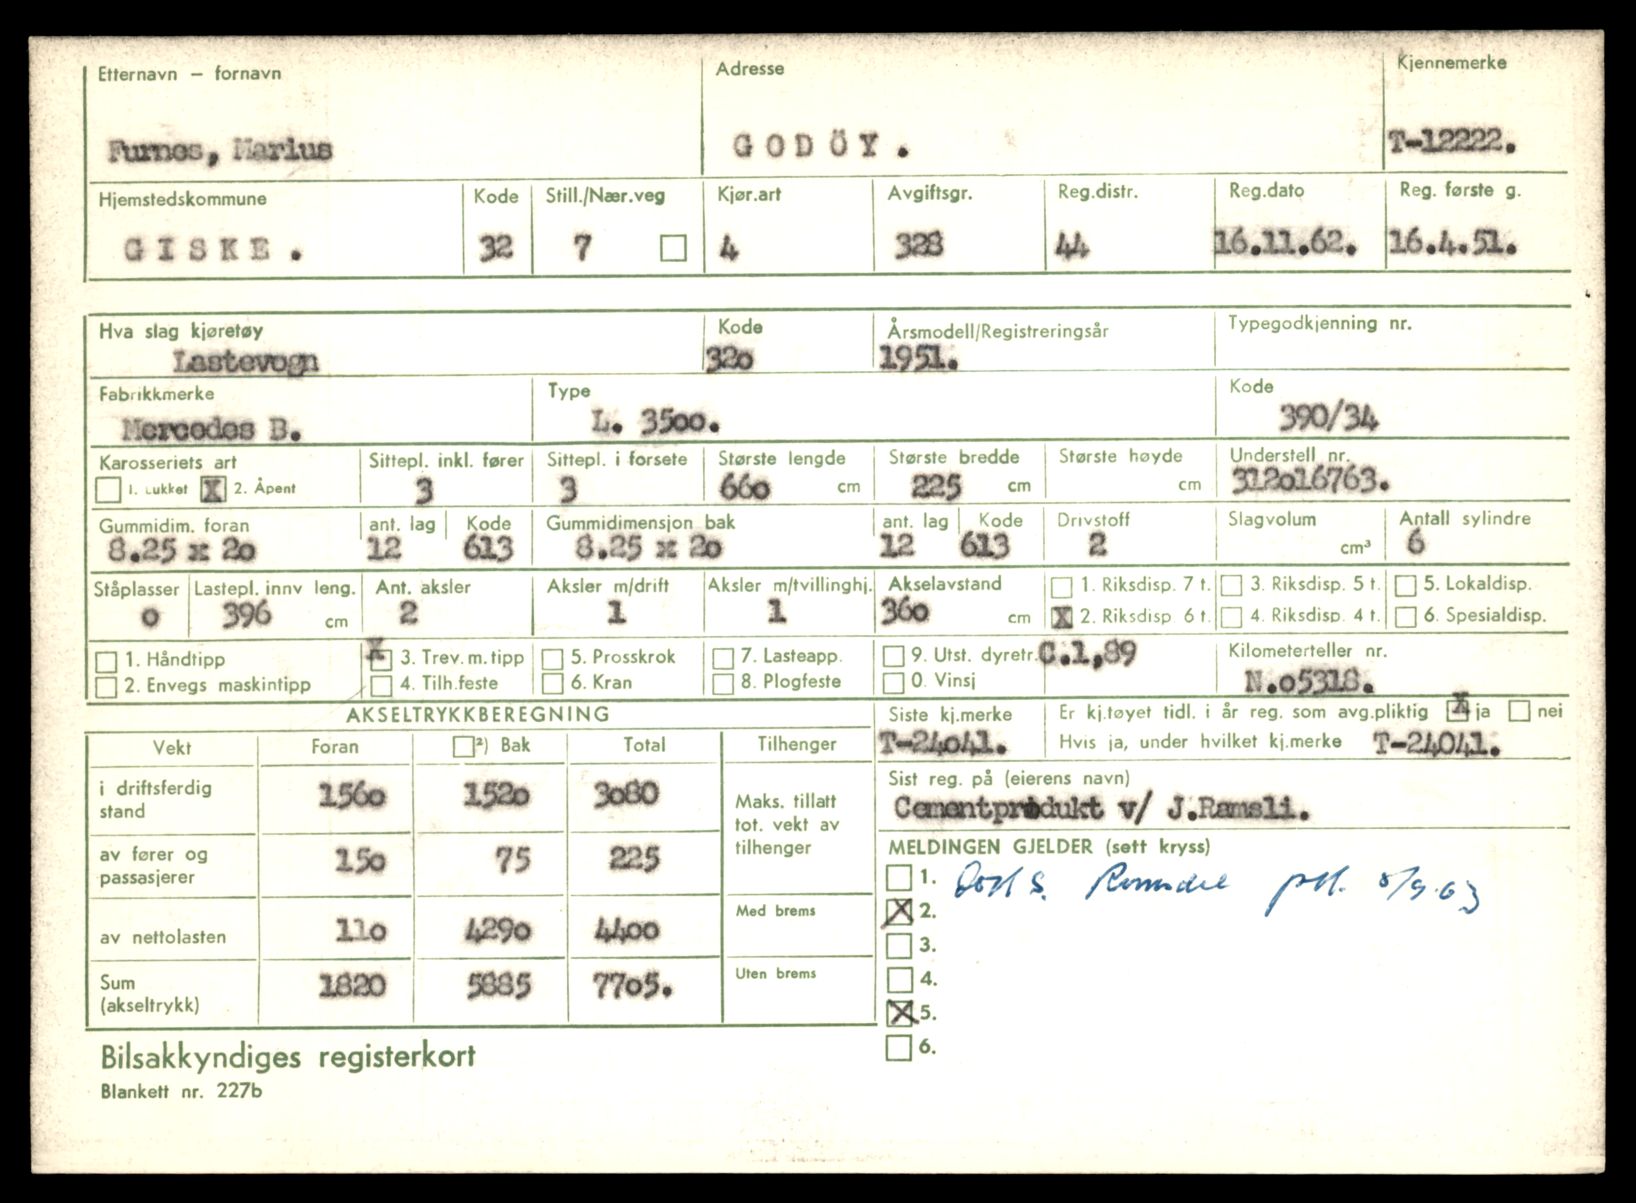 Etternavn – fornavn Adresse Kjennemerke
Furnes, Marius GODÖY. T-12222.
Hjemstedskommune Kode Still./Nær.veg Kjør.art Avgiftsgr. Reg.distr. Reg.dato Reg. første g.
GISKE. 32 7 4 328 44 16.11.62. 16.4.51.
Hva slag kjøretøy Kode Årsmodell/Registreringsår Typegodkjenning nr.
Lastevogn 320 1951.
Fabrikkmerke Type Kode
Mercedes B. L. 3500. 390/34
Karosseriets art Sittepl. inkl. fører Sittepl. i forsete Største lengde Største bredde Største høyde Understell nr.
1. Lukket X 2. Åpent 3 3 660 cm 225 cm cm 312016763.
Gummidim. foran ant. lag Kode Gummidimensjon bak ant. lag Kode Drivstoff Slagvolum Antall sylindre
8.25 x 20 12 613 8.25 x 20 12 613 2 cm³ 6
Ståplasser Lastepl. innv leng. Ant. aksler Aksler m/drift Aksler m/tvillinghj. Akselavstand 1. Riksdisp. 7 t. 3. Riksdisp. 5 t. 5. Lokaldisp.
0 396 cm 2 1 1 360 cm X 2. Riksdisp 6 t. 4. Riksdisp. 4 t. 6. Spesialdisp.
1. Håndtipp X 3. Trev. m. tipp 5. Prosskrok 7. Lasteapp. 9. Utst. dyretr. C.1,89 Kilometerteller nr.
2. Envegs maskintipp 4. Tilh.feste 6. Kran 8. Plogfeste 0. Vinsj N.05318.
AKSELTRYKKBEREGNING Siste kj.merke Er kj.tøyet tidl. i år reg. som avg.pliktig X ja nei
Vekt Foran ²) Bak Total Tilhenger T-24041. Hvis ja, under hvilket kj.merke T-24041.
i driftsferdig stand 1560 1520 3080 Maks. tillatt tot. vekt av tilhenger Sist reg. på (eierens navn)
Cementprodukt v/ J.Ramsli.
av fører og passasjerer 150 75 225 MELDINGEN GJELDER (sett kryss)
1. pkl. 5/9.63
av nettolasten 110 4290 4400 Med brems X 2.
3.
Sum (akseltrykk) 1820 5885 7705. Uten brems 4.
X 5.
6.
Bilsakkyndiges registerkort
Blankett nr. 227b